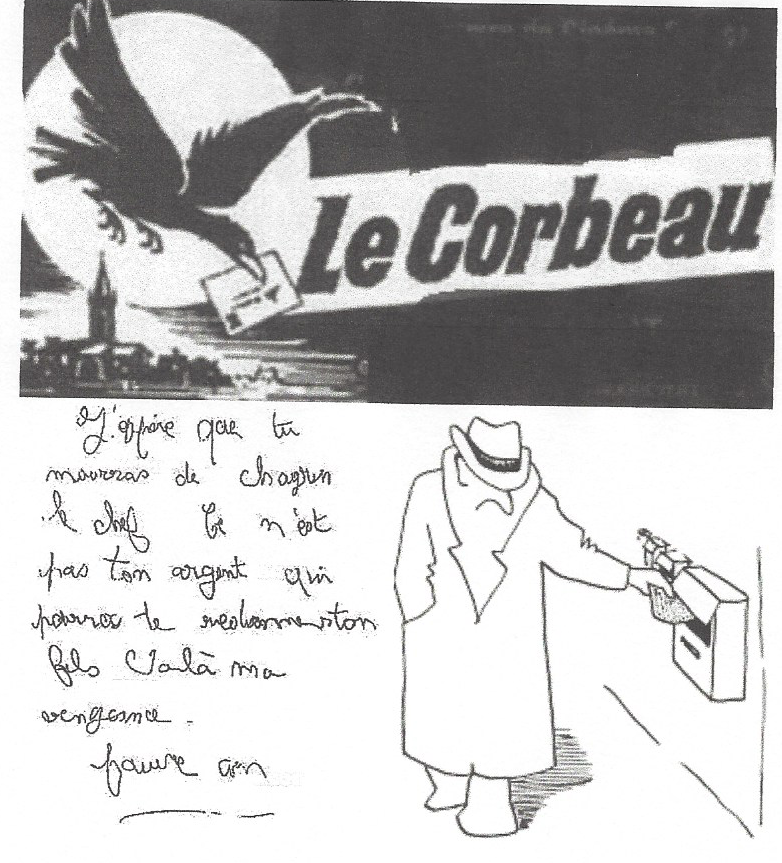 Le Corbeau
J'espère que tu
mourras de chagrin
le chef Ce n'est
pas ton argent qui
pourra te redonner ton
fils Voilà ma
vengeance.
pauvre con